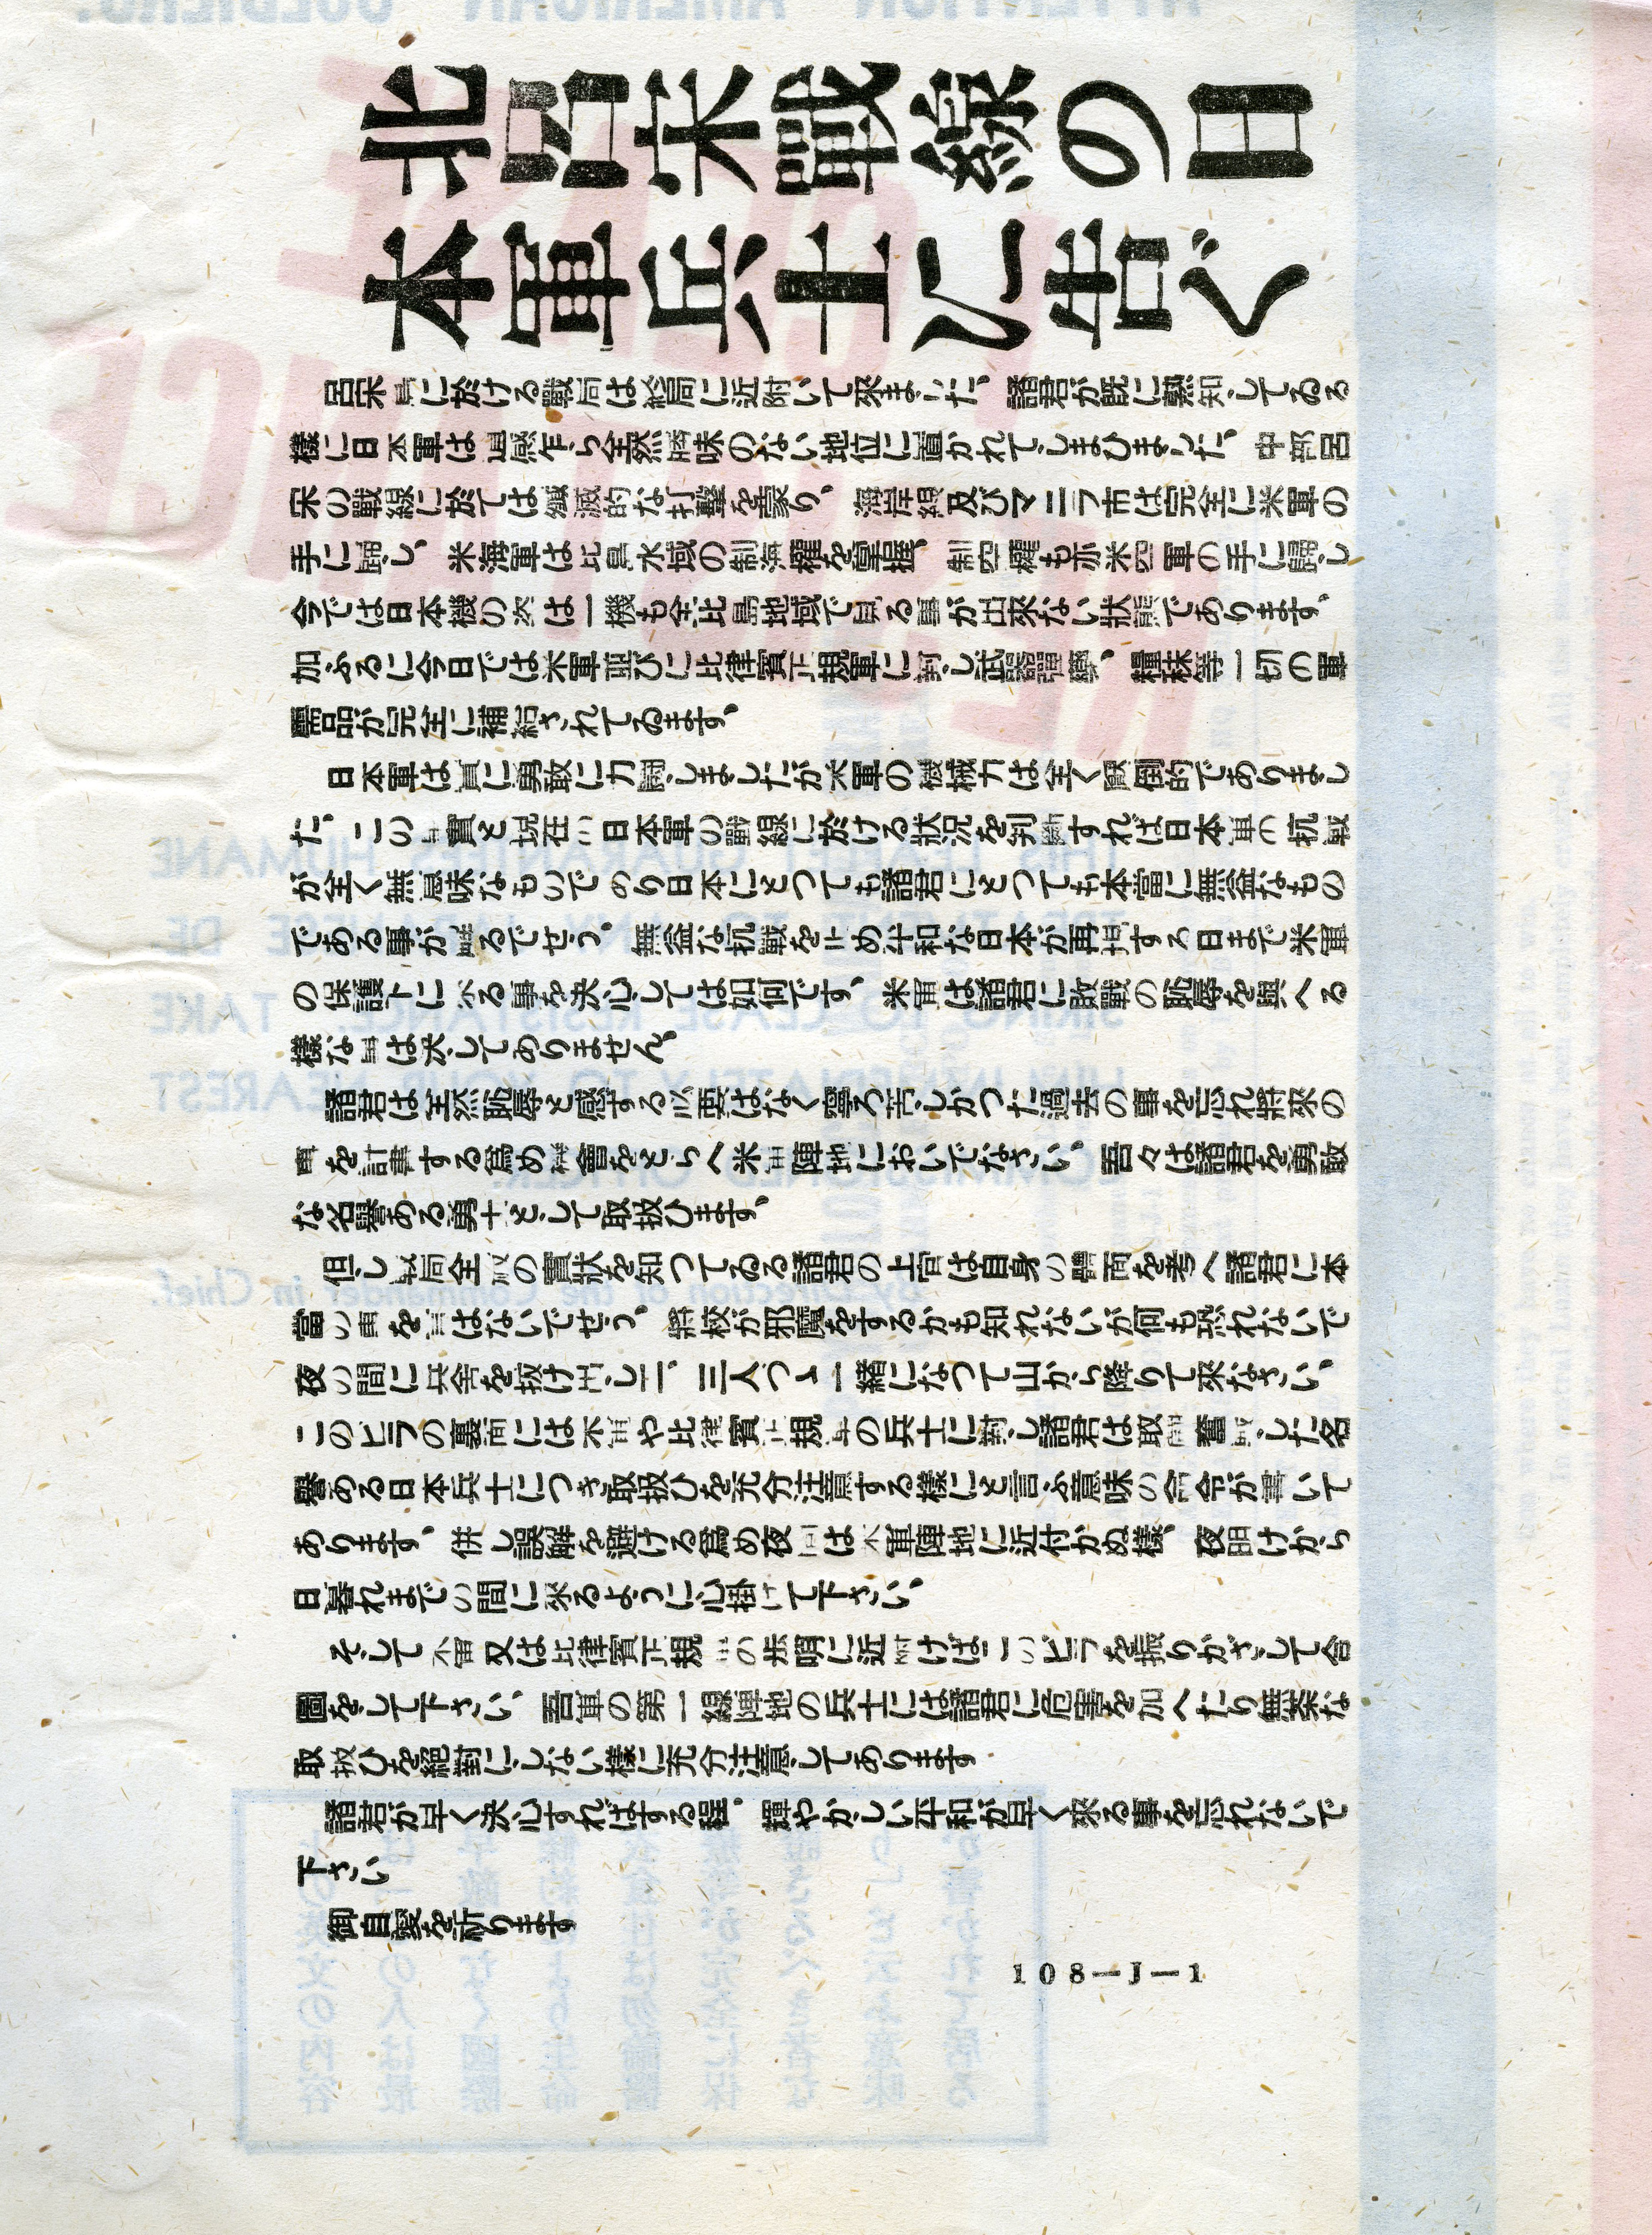 北呂宋戰線の日
本軍兵士に告ぐ
呂宋島に於ける戰局は終局に近附いて來ました。諸君が既に熟知してゐる
樣に日本軍は遺憾乍ら全然興味のない地位に置かれてしまひました。中部呂
宋の戰線に於ては潰滅的な打擊を蒙り。海岸線及びマニラ市は完全に米軍の
手に歸し。米海軍は比島水域の制海權を掌握。制空權も亦米空軍の手に歸し
今では日本機の姿は一機も全比島地域で見る事が出來ない狀態であります。
加ふるに今日では米軍並びに比律賓正規軍に對し武器彈藥。糧秣等一切の軍
需品が完全に補給されてゐます。
日本軍は眞に勇敢に力鬪しましたが米軍の機械力は全く壓倒的でありまし
た。この事實と現在の日本軍の戰線に於ける狀況を判斷すれば日本軍の抗戰
が全く無意味なもので あり日本にとつても諸君にとつても本當に無益なもの
である事が解るでせう。無益な抗戰を止め平和な日本が再現する日まで米軍
の保護下に入る事を決心しては如何です。米軍は諸君に敗戰の恥辱を與へる
樣な事は決してありません。
諸君は全然恥辱を感ずる必要はなく寧ろ苦しかつた過去の事を忘れ將來の
事を計畫する爲め機會をとらへ米軍陣地においでなさい。吾々は諸君を勇敢
な名譽ある勇士として取扱ひます。
但し戰局全般の實狀を知つてゐる諸君の上官は自身の體面を考へ諸君に本
當の事を言はないでせう。將校が邪魔をするかも知れないが何も恐れないで
夜の間に兵舍を拔け出し二。三人づゝ一緒になつて山から降りて來なさい。
このビラの裏面には米軍や比律賓正規軍の兵士に對し諸君は取調 濟 した名
譽ある日本兵士につき取扱ひを充分注意する樣にと言ふ意味の命令が書いて
あります。併し誤解を避ける爲め夜間は米軍陣地に近付かぬ樣。夜明けから
日暮れまでの間に來るように心掛けて下さい。
そして米軍又は比律賓正規軍の歩哨に近附けばこのビラを振りかざして合
圖をして下さい 吾軍の第一線陣地の兵士には諸君に危害を加へたり無茶な
取扱ひを絕對にしない樣に充分注意してあります
諸君が早く決心すればする程。輝やかしい平和が早く來る事を忘れないで
下さい
御自愛を祈ります
108—J—1